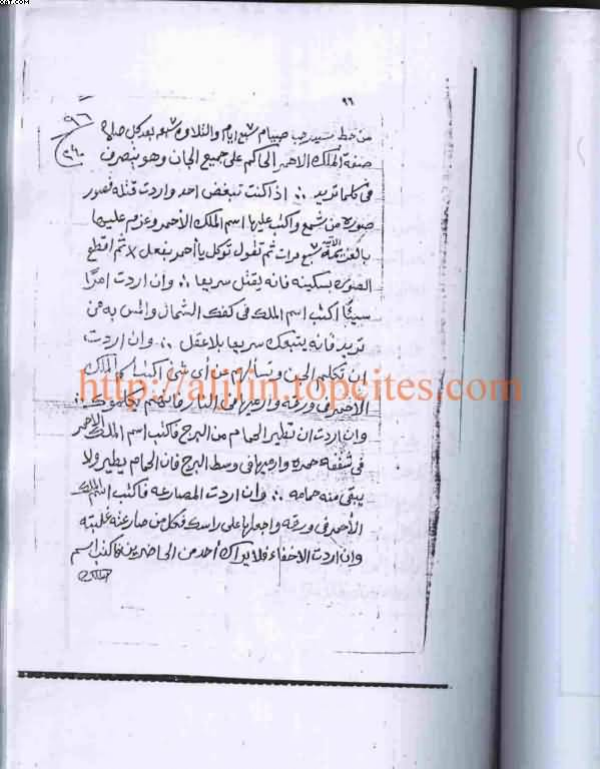 XAT.COM
٩٦
٩٦
٢٤٠
من خط سيدرجب صيام سبع ايام والتلاوه سبعه بعد كل صلاة
صفة الملك الاحمر الحاكم على جميع الجان وهو يتصرف
فى كلما تريد ∴ اذا كنت تبغض احد واردت قتله فصور
صوره من شمع واكتب عليها اسم الملك الاحمر وعزم عليها
بالعزيمة الآتية سبع مرات ثم تقول توكل يا احمر بفعل × ثم اقطع
الصوره بسكينه فانه يقتل سريعا ∴ وان اردت امرًا
سيئًا اكتب اسم الملك فى كفك الشمال والمس به من
تريد فانه يتبعك سريعا بلا عقل ∴ وان اردت
ان تكلم الجن وتسألهم من أى شئ اكتب اسم الملك
الاحمر فى ورقه وارميها فى النار فانهم يكلموك ∴
وان اردت ان تطير الحمام من البرج فاكتب اسم الملك الاحمر
فى شقفه حمره وارميها فى وسط البرج فان الحمام يطير ولا
يبقى منه حمامه ∴ وان اردت المصارعه فاكتب اسم الملك
الأحمر فى ورقه واجعلها على راسك فكل من صارعته غلبته
وان اردت الاخفاء فلا يراك أحد من الحاضرين فاكتب اسم
http://aljiin.topcites.com